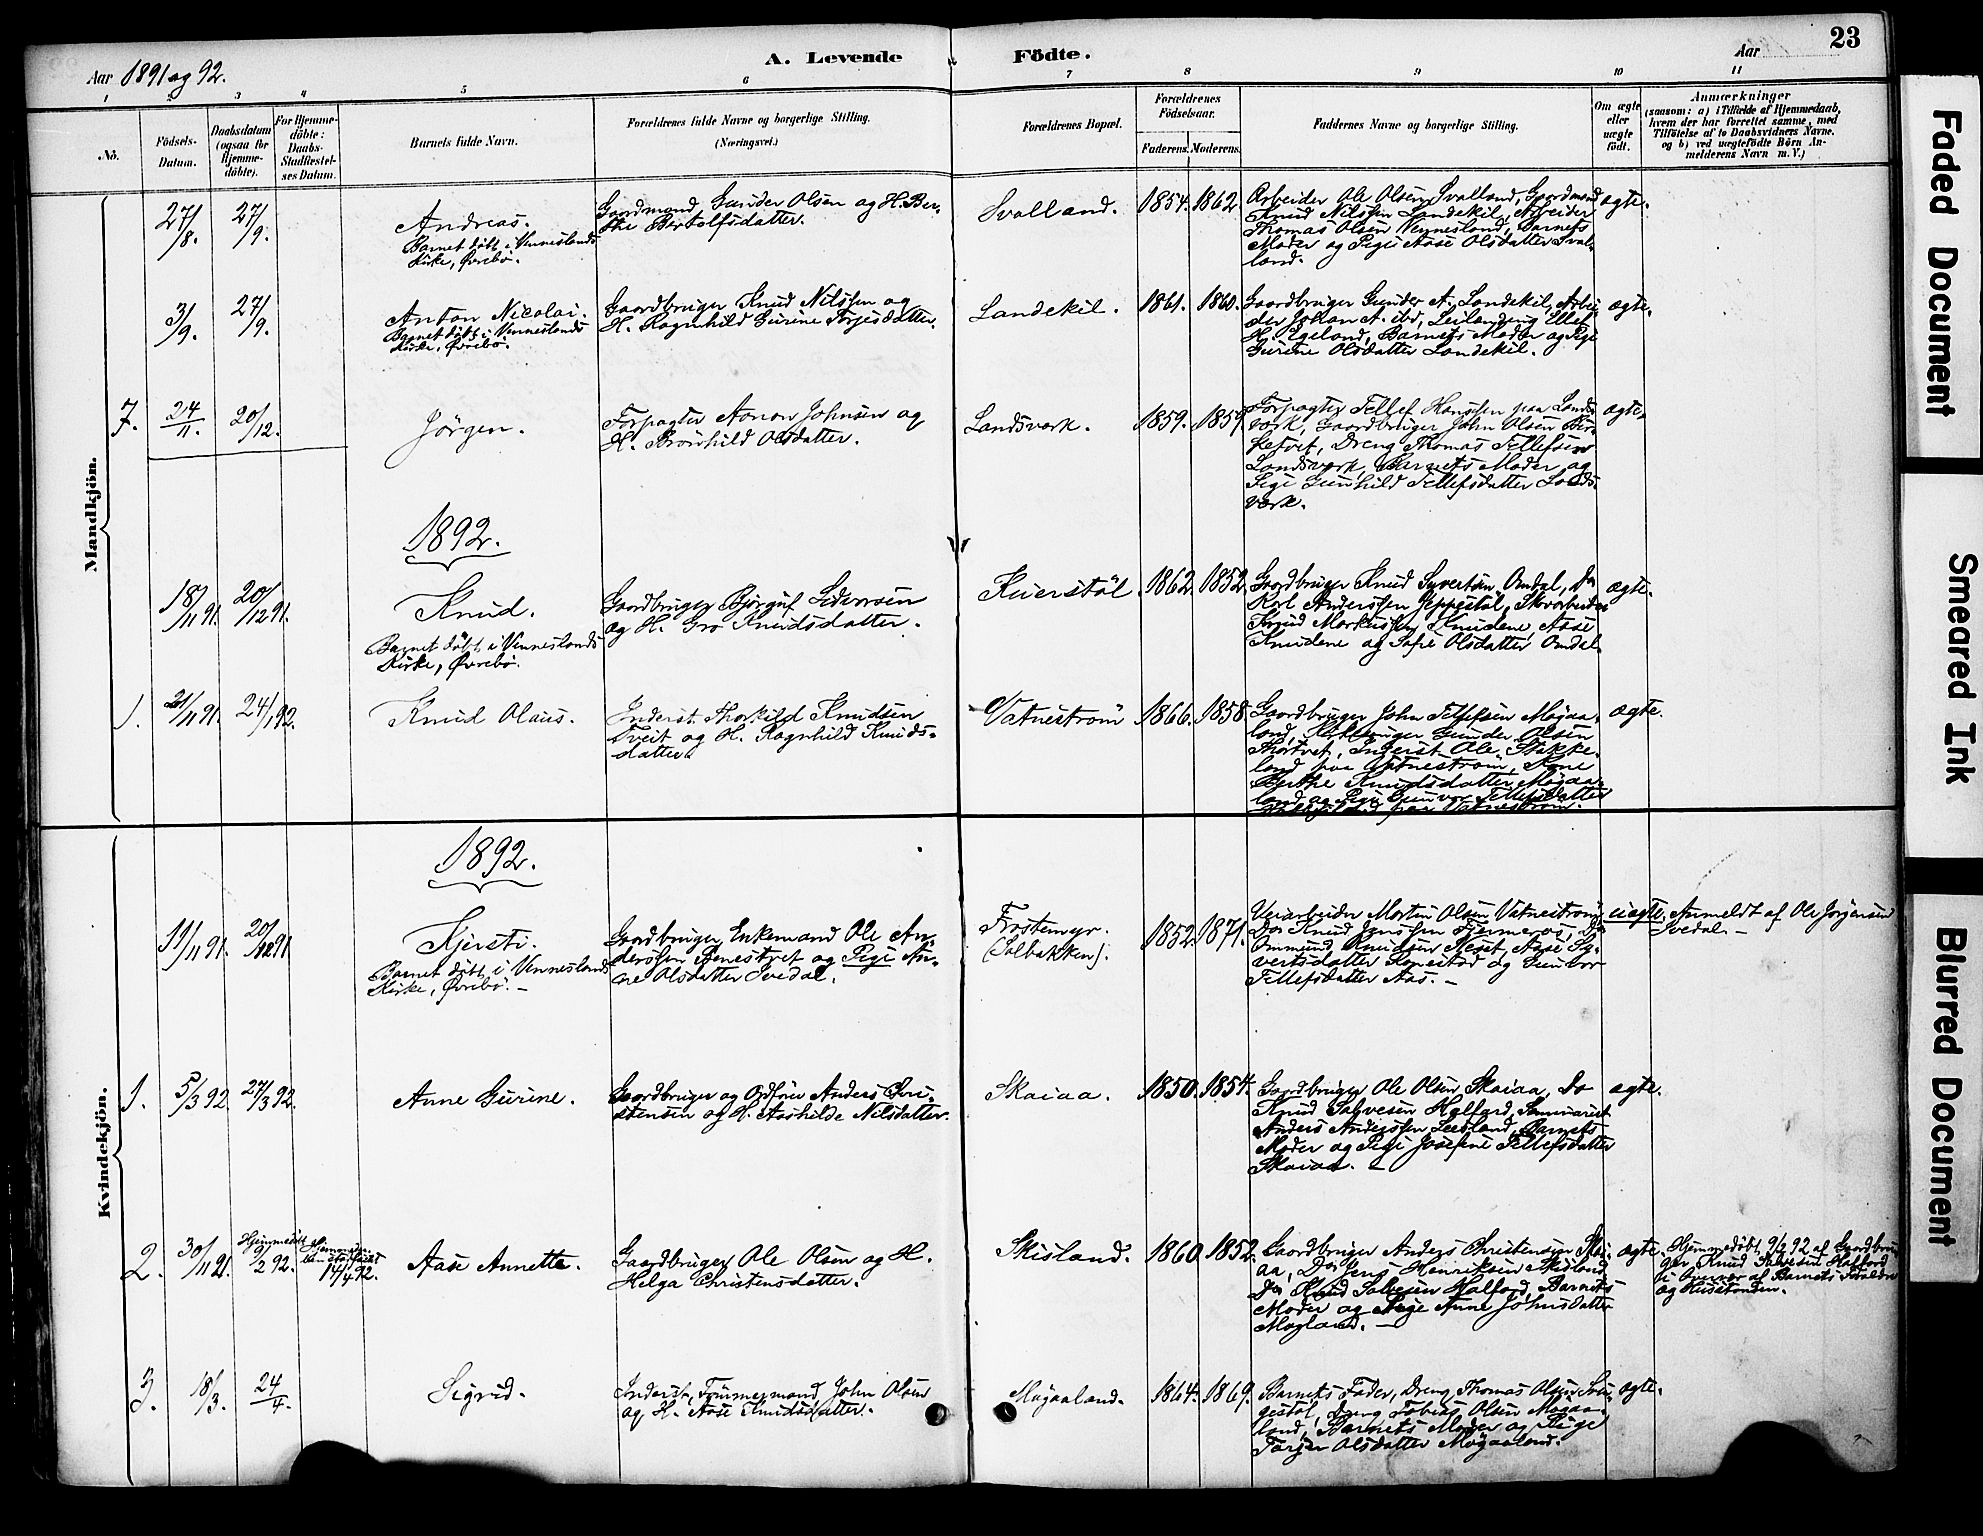 23
Aar 1891 og 92.
A. Levende Födte.
Aar
1 2 3 4 5 6 7 8 9 10 11
No.
Födsels-
Datum.
Daabsdatum
(ogsaa for
Hjemme-
döbte).
For Hjemme-
döbte:
Daabs-
Stadfæstel-
ses Datum.
Barnets fulde Navn.
Forældrenes fulde Navne og borgerlige Stilling.
(Næringsvei.)
Forældrenes Bopæl.
Forældrenes
Födselsaar.
Faderens. Moderens.
Faddernes Navne og borgerlige Stilling.
Om ægte
eller
uægte
födt.
Anmærkninger
(saasom: a) i Tilfælde af Hjemmedaab,
hvem der har forrettet samme, med
Tilföielse af to Daabsvidners Navne.
og b) ved uægtefödte Börn An-
melderens Navn m. V.)
Mandkjön.
27/8. 27/9.
Andreas.
Barnet döbt i Venneslands
Kirke, Øvrebö.
Gaardmand Gunder Olsen og H. Ber-
the Bertelfsdatter.
Svalland.
1854. 1862
Arbeider Ole Olsen Svalland, Gaardmand
Knud Nilssen Landekil, Arbeider
Thomas Olsen Vennesland, Barnets
Moder og Pige Aase Olsdatter Sval-
land.
ægte.
3/9. 27/9.
Anton Nicolai.
Barnet döbt i Venneslands
Kirke, Øvrebö.
Gaardbruger Knud Nilssen og
H. Ragnhild Gurine Torjesdatter.
Landekil.
1861. 1860.
Gaardbruger Gunder A. Landekil, Arbei-
der Johan A. ibd, Leilænding Ellef
H. Egeland, Barnets Moder og Pige
Gurine Olsdatter Landekil.
ægte.
7. 24/11. 20/12.
Jörgen.
Forpagter Aanon Johnsen og
H. Brönhild Olsdatter.
Landsverk.
1859. 1859
Forpagter Tellef Hanssen paa Lands-
verk, Gaardbruger John Olsen Bir-
ketvet, Dreng Thomas Tellefsen
Landsverk, Barnets Moder og
Pige Gunhild Tellefsdatter Lands-
verk.
ægte.
1892.
18/11 91. 20/12 91.
Knud.
Barnet döbt i Venneslands
Kirke, Øvrebö.
Gaardbruger Björguf
og H. Gro Knudsdatter.
Kuerstöl
1862. 1852.
Gaardbruger Knud Syvertsen Omdal, Do
Karl Anderssen Jeppestöl, Skovarbeider
Knud Markussen Knudene, Aase
Knudene og Sofie Olsdatter Omdal.
ægte.
1. 21/11 91. 24/1 92.
Knud Olaus.
Inderst Thorkild Knudsen
Tveit og H. Ragnhild Knuds-
datter.
Vatneström
1866. 1858.
Gaardbruger John Tellefsen Mogaa-
land, Gunder Olsen
Thortvet, Inderst Ole Stakke-
land paa Vatneström, Kone
Berthe Knudsdatter Mogaa-
land og Pige Gunvor Tellefsdatter
paa Vatneström.
ægte.
Kvindekjön.
1892.
19/11 91. 20/12 91
Kjersti.
Barnet döbt i Venneslands
Kirke, Øvrebö. -
Gaardbruger Enkemand Ole An-
derssen Benestvet og Pige An-
ne Olsdatter Svedal.
Frostemyr.
(Solbakken).
1852. 1871.
Veiarbeider Morten Olsen Vatneström,
Do Knud Jenssen Do
Ommund Knudsen Neset, Aase Sy-
vertsdatter og Gunvor
Tellefsdatter Aas. -
uægte.
Anmeldt af Ole Jörgensen
Svedal. -
1. 5/3 92. 27/3 92.
Anne Gurine.
Gaardbruger og Ordförer Anders Chri-
stensen og H. Aashilde Nilsdatter.
Skaiaa.
1850. 1854.
Gaardbruger Ole Olsen Skaiaa, Do
Knud Salvesen Hafford, Seminarist
Anders Anderssen Lestand, Barnets
Moder og Pige Josefine Tellefsdatter
Skaiaa. -
ægte.
2. 30/11 91. Hjemmedöbt 9/2 92. 17/4 92.
Aase Annette.
Gaardbruger Ole Olsen og H.
Helga Christensdatter.
Skisland.
1860. 1852.
Gaardbruger Anders Christensen Skai-
aa, Do Jens Henriksen Skisland
Do Knud Salvesen Hafford, Barnets
Moder og Pige Anne Johnsdatter
Mogland. -
ægte.
Hjemmedöbt 9/2 92 af Gaardbru-
ger Knud Salvesen Hafford
i Nærvær af Barnets Forældre
og Husstanden.
3. 18/3. 24/4.
Sigrid.
Inderst, Tömmermand John Olsen
og H. Aase Knudsdatter.
Mogaaland.
1864. 1869.
Barnets Fader, Dreng Thomas Olsen
Dreng Tobias Olsen Mogaa-
land, Barnets Moder og Pige
Torjer Olsdatter Mogaaland.
ægte.
Faded Document
Smeared Ink
Blurred Document